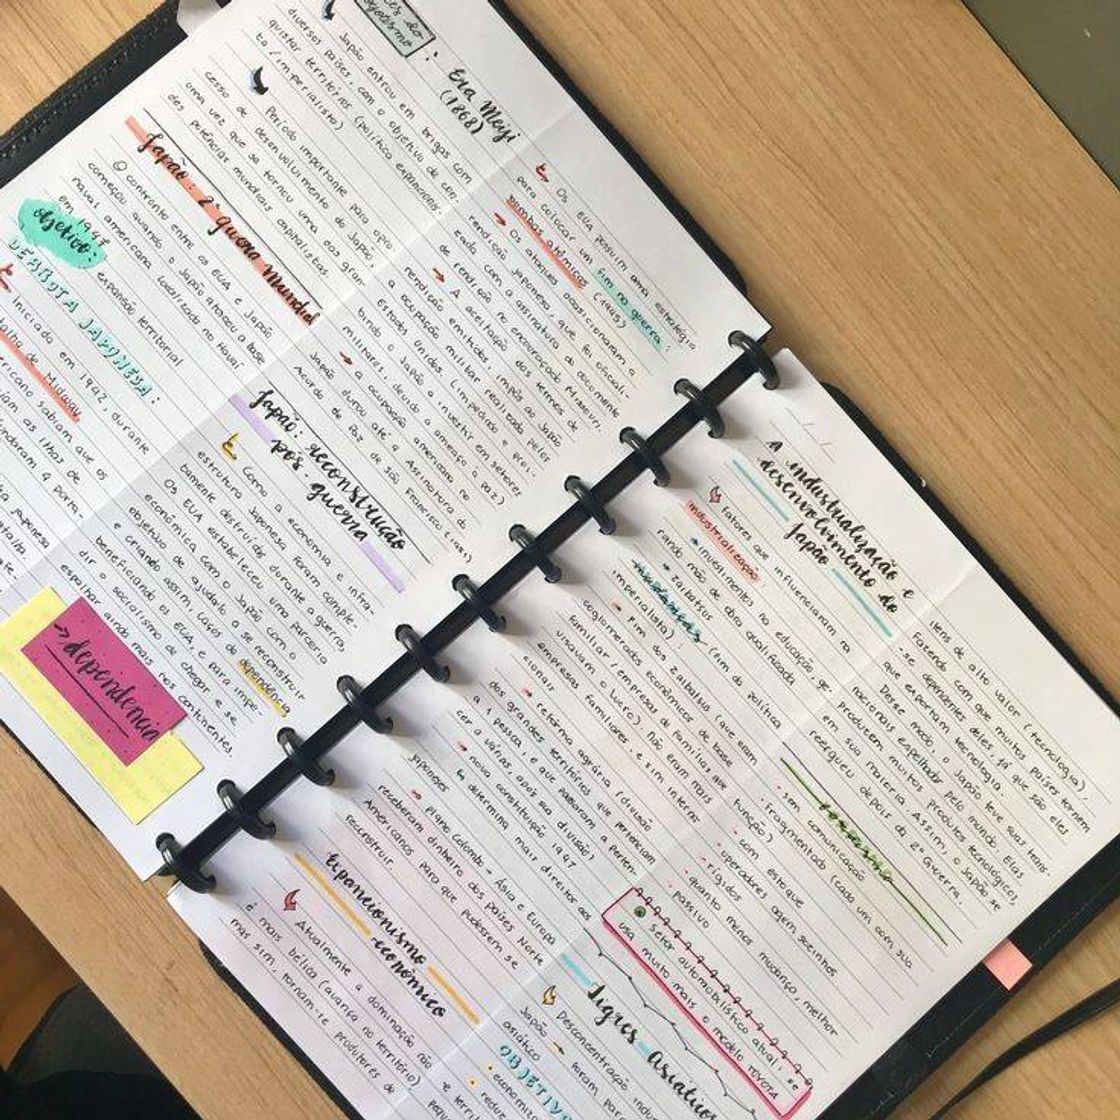 Era Meiji
(1868)
Japão entrou em brigas com
diversos países, com o objetivo de con-
quistar territórios (política expansionis-
ta / imperialista)
Período importante para o pro
cesso de desenvolvimento do Japão,
uma vez que se tornou uma das gran
des potências mundiais capitalistas
Japão: 2ª guerra mundial
O confronto entre os EUA e Japão
começou quando o Japão atacou a base
naval americana localizada no Havaí
em 1941
objetivo: expansão territorial
DERROTA JAPONESA:
Iniciado em 1942, durante
Batalha de Midway
sabiam que os
as ilhas de
afundaram 4 porta-
japonesa
batalha
Os EUA possuíam uma estratégia
para colocar um fim na guerra:
bombas atômicas (1945)
Os ataques ocasionaram a
rendição japonesa, que foi oficiali-
zada com a assinatura do documento
de rendição no encouraçado Missouri
A aceitação dos termos de
rendição emitidos impôs ao Japão
a ocupação militar realizada pelos
Estados Unidos (impedindo e proi-
bindo o Japão a investir em setores
militares, devido a ameaça à paz)
a ocupação americana no
Japão durou até a Assinatura do
Acordo de Paz de são Francisco (1951)
Japão: reconstrução
pós guerra
Como a economia e infra-
estrutura japonesa foram comple-
tamente destruídas durante a guerra,
os EUA estabeleceu uma parceria
econômica com o Japão com o
objetivo de ajudá-lo a se reconstruir
e criando assim, laços de dependência
beneficiando os EUA, e para impe-
dir o socialismo de chegar e se
espalhar ainda mais nos continentes.
→ dependência
A industrialização e
desenvolvimento do
Japão
fatores que influenciaram na
industrialização
→ investimentos na educação, ge-
rando mão de obra qualificada
→ zaibatsus
mudanças: (fim da política
imperialista)
→ fim dos zaibatsus (que eram
conglomerados econômicos de base
familiar / empresas de famílias que
visavam o lucro) não eram mais
empresas familiares, e sim interna
cionais
→ reforma agrária (divisão
dos grandes territórios que pertenciam
a 1 pessoa, e que passaram a perten-
cer a várias, após sua divisão)
→ nova constituição 1947
determina mais direitos aos
japoneses
→ plano Colombo - Ásia e Europa
receberam dinheiro dos países Norte
Americanos para que pudessem se
reconstruir
Expancionismo
econômico
Atualmente a dominação não
é mais bélica (avança no território)
mas sim, tornam-se produtores de
itens de alto valor (tecnologia),
fazendo com que muitos países tornem
-se dependentes deles já que são eles
que exportam tecnologia.
Desse modo, o Japão teve suas trans-
nacionais espelhadas pelo mundo. Elas
produzem muitos produtos tecnológicos,
em sua maioria. Assim, o Japão se
reergueu depois da 2ª Guerra.
• sem comunicação
• fragmentado (cada um com sua
função)
• com estoque
• operadores agem sozinhos
• rígidos
• quanto menos mudança, melhor
• passivo
O setor automobilístico atual, se
usa muito mais o modelo TOYOTA
Tigres Asiáticos
Desconcentração indus
Japão →
asiático foram para
OBJETIVO